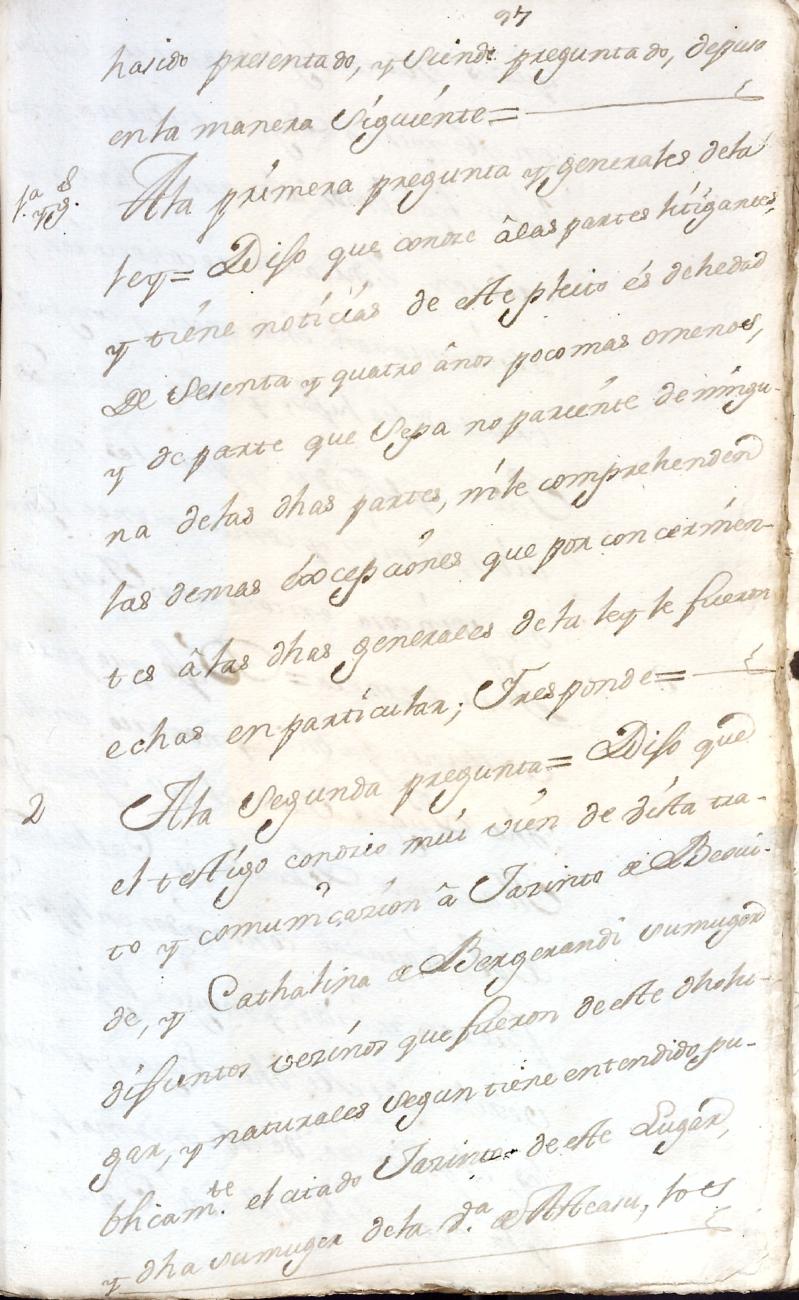 97
ha sido presentado, y siendo preguntado, depuso
en la manera siguiente=
1.ª y g.s Ala primera pregunta y generales dela
ley= Dijo que conoce âlas partes litigantes,
y tiéne notíciâs de este pleito és de hedad
De Sesenta y quatro ânos poco mas omenos,
y de parte que Sepa no pariénte de ningu-
na delas dhas partes, nile comprehenden
las demas excepciónes que por concernien-
tes âlas dhas generales dela ley le fueron
echas en particular; Y responde=
2 Ala Segunda pregunta= Dijo que
el testigo conocio mui vién de vista tra-
to y comunicación â Jazinto de Beoui-
de, y Cathalina de Bergerandi su muger
difuntos vezinos que fueron de este dho lu-
gar, y naturales segun tiene entendido pu-
blicam.te el citado Jazinto de este Lugar,
y dha su muger dela de Atteasu, lo es